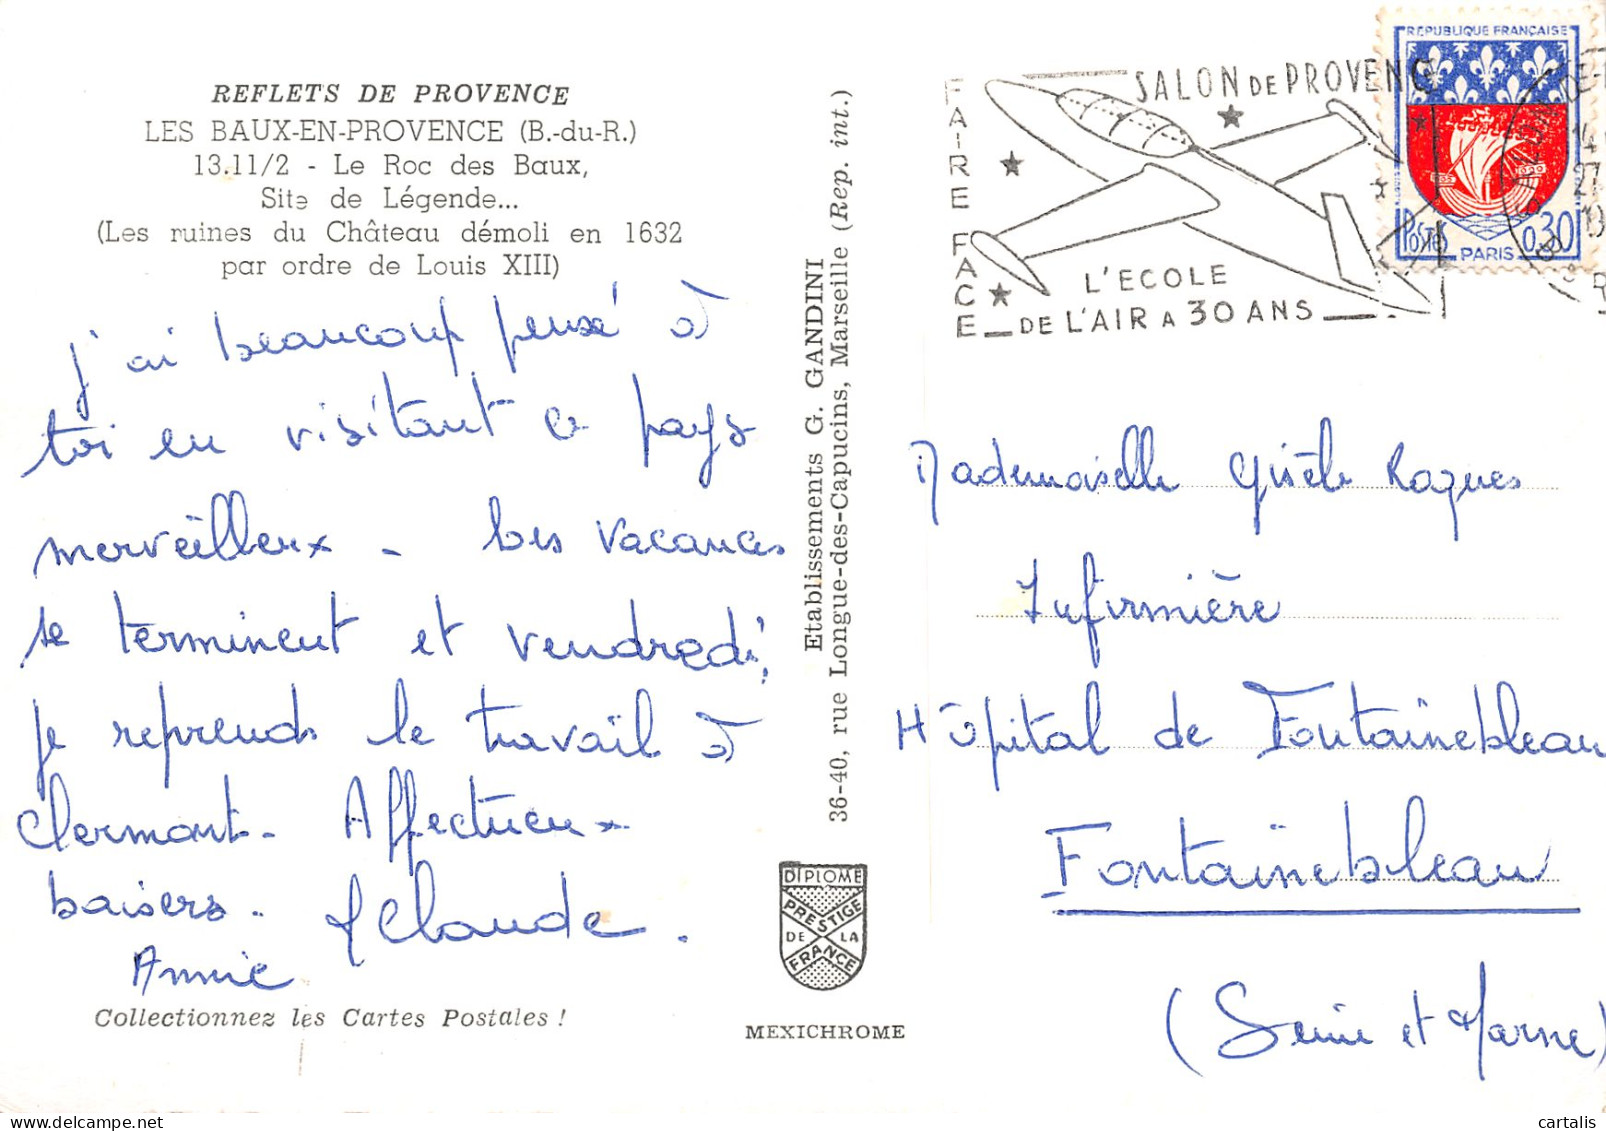 REFLETS DE PROVENCE
LES BAUX-EN-PROVENCE (B.-du-R.)
13.11/2 - Le Roc des Baux,
Site de Légende...
(Les ruines du Château démoli en 1632
par ordre de Louis XIII)
j'ai beaucoup pensé à
toi en visitant ce pays
merveilleux - les vacances
se terminent et vendredi,
je reprends le travail à
Clermont. Affectueux
baisers.
Annie
J Claude.
Collectionnez les Cartes Postales !
Etablissements G. GANDINI
36-40, rue Longue-des-Capucins, Marseille (Rep. int.)
DIPLOME
PRESTIGE
DE LA
FRANCE
MEXICHROME
FAIRE FACE
SALON DE PROVENC
L'ECOLE
DE L'AIR A 30 ANS
REPUBLIQUE FRANÇAISE
POSTES
0,30
PARIS
SALON DE-P
14
27
19
Mademoiselle Gisèle Roques
Infirmière
Hôpital de Fontainebleau
Fontainebleau
(Seine et Marne)
cartalis